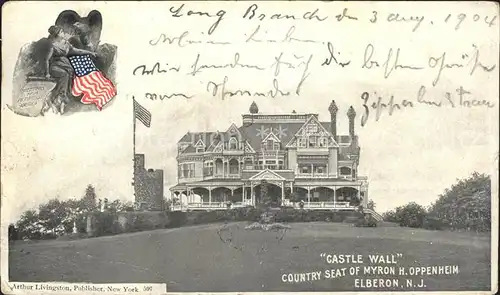 Long Branch den 3 Aug. 1904
Meine Lieben
wir senden für die besten Grüße
vom Strande
Zipperlin & Frau
"CASTLE WALL"
COUNTRY SEAT OF MYRON H. OPPENHEIM
ELBERON, N.J.
Arthur Livingston, Publisher, New York 507